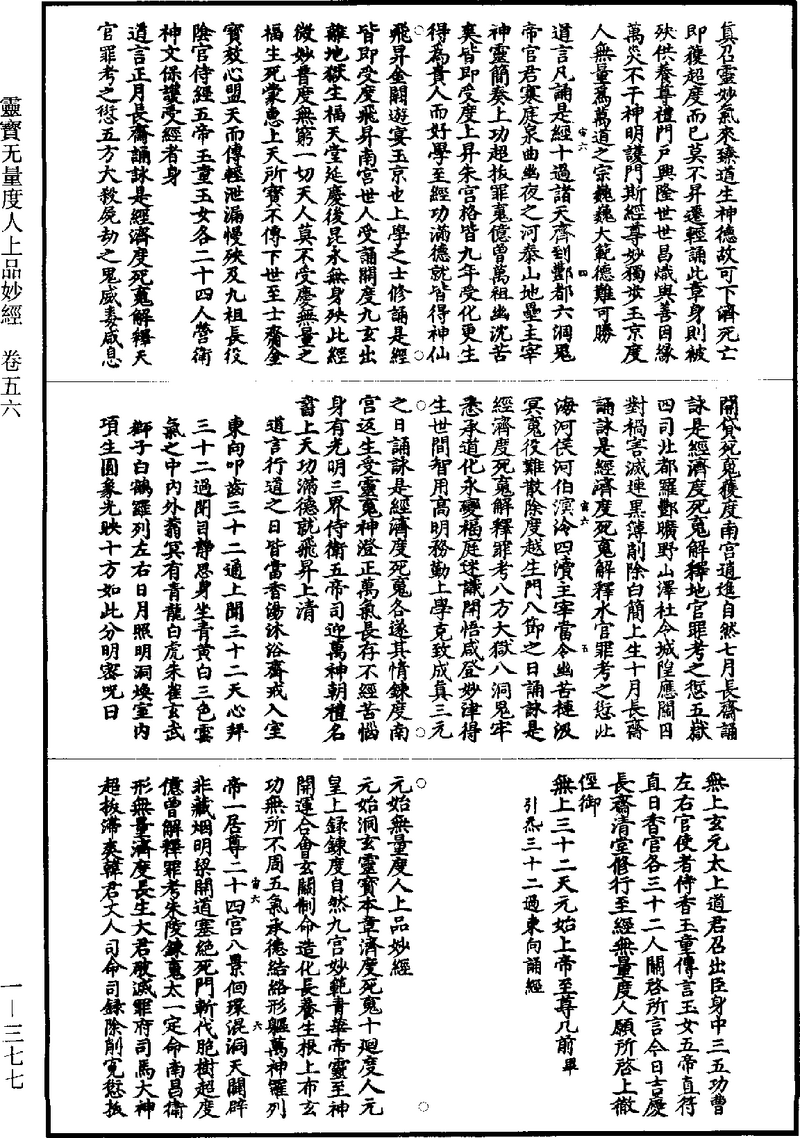 真召靈妙氣來臻道生神德故可下濟死亡
即獲超度而已莫不昇遷輕誦此章身則被
殃供養尊禮門戶興隆世世昌熾與善因緣
萬災不干神明護門斯經尊妙獨步玉京度
人無量為萬道之宗巍巍大範德難可勝
道言凡誦是經十過諸天齊到酆都六洞鬼
帝官君寒庭泉曲幽夜之河泰山地壘主宰
神靈簡奏上功超拔罪魂億曾萬祖幽沈苦
爽皆即受度上昇朱宮格皆九年受化更生
得為貴人而好學至經功滿德就皆得神仙
飛昇金闕遊宴玉京也上學之士修誦是經
皆即受度飛昇南宮世人受誦開度九玄出
離地獄生福天堂延慶後昆永無身殃此經
微妙普度無窮一切天人莫不受慶無量之
福生死蒙惠上天所寶不傳下世至士齎金
寶效心盟天而傳輕泄漏慢殃及九祖長役
陰官侍經五帝玉童玉女各二十四人營衛
神文保護受經者身
道言正月長齋誦詠是經濟度死魂解釋天
官罪考之愆五方大殺屍劫之鬼威毒咸息
開貸死魂獲度南宮逍遙自然七月長齋誦
詠是經濟度死魂解釋地官罪考之愆五嶽
四司北都羅酆曠野山澤社令城隍應關因
對禍害滅連黑簿削除白簡上生十月長齋
誦詠是經濟度死魂解釋水官罪考之愆北
海河侯河伯溟泠四瀆主宰當令幽苦槤汲
冥魂役難散除度越生門八節之日誦詠是
經濟度死魂解釋罪考八方大獄八洞鬼牢
悉承道化永變楬庭迷識開悟咸登妙津得
生世間智用高明務勤上學克致成真三元
之日誦詠是經濟度死魂各遂其情鍊度南
宮返生受靈魂神澄正萬氣長存不經苦惱
身有光明三界侍衛五帝司迎萬神朝禮名
書上天功滿德就飛昇上清
道言行道之日皆當香湯沐浴齋戒入室
東向叩齒三十二通上聞三十二天心拜
三十二過閉目靜思身坐青黃白三色雲
氣之中內外蓊冥有青龍白虎朱雀玄武
獅子白鶴羅列左右日月照明洞煥室內
項生圓象光映十方如此分明密呪曰
無上玄元太上道君召出臣身中三五功曹
左右官使者侍香玉童傳言玉女五帝直符
直日香官各三十二人關啓所言今日吉慶
長齋清堂修行至經無量度人願所啓上徹
徑御
無上三十二天元始上帝至尊几前畢
引炁三十二過東向誦經
元始無量度人上品妙經
元始洞玄靈寶本章濟度死魂十迴度人元
皇上錄鍊度自然九宮妙範青華帝靈至神
開運合會玄關制命造化長養生根上布玄
功無所不周五氣承德結絡形軀萬神羅列
帝一居尊二十四宮八景佪環混洞天關辟
非藏烟明梁開道塞絕死門斬伐胞樹超度
億曾解釋罪考朱陵鍊魂太一定命南昌衛
形無量濟度長生大君破滅罪府司馬大神
超拔滯爽韓君丈人司命司錄除削冤愆拔
靈寶无量度人上品妙經　卷五六
一－三七七